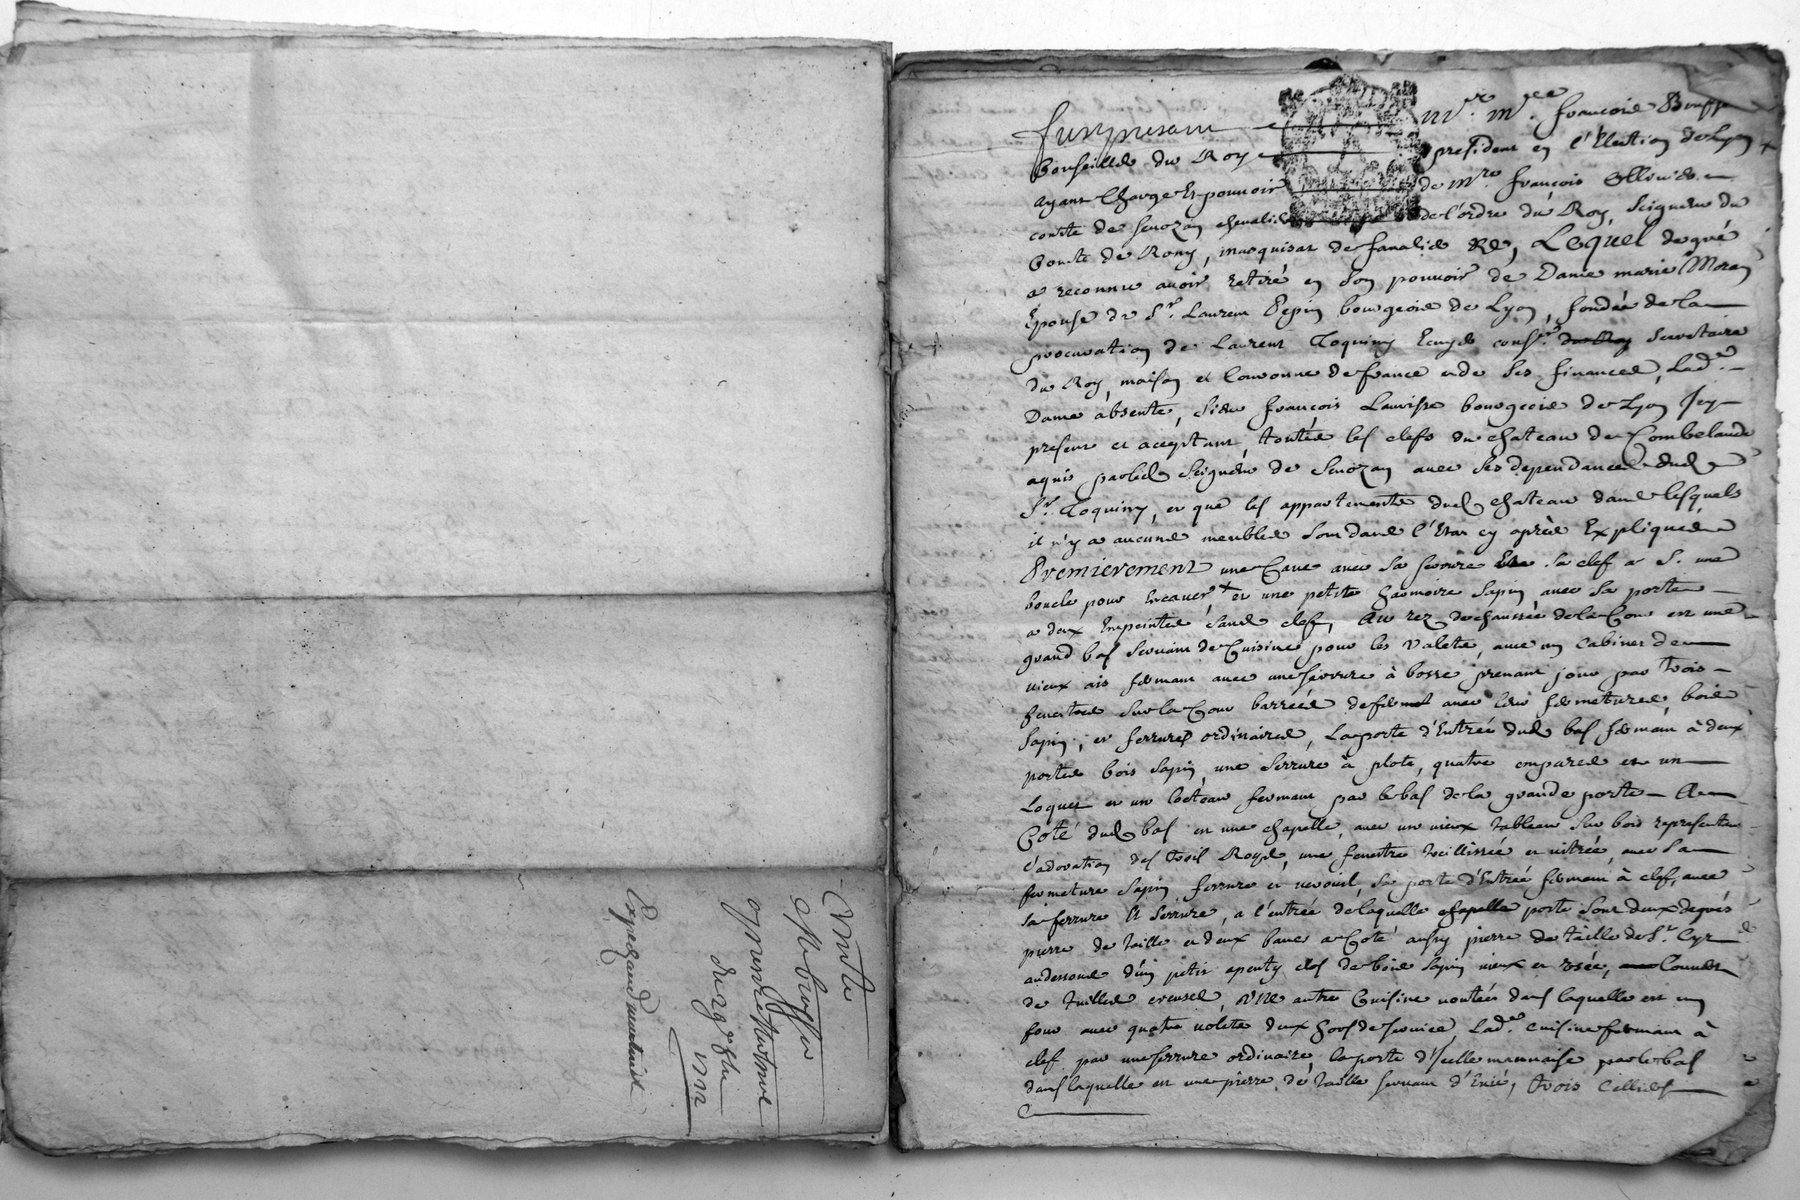 Vente
Fust present Mr. Me. françois
Conseiller du Roy president en l'Election de Lyon
ayant Charge Et pouvoir de Mre. françois Ollivier
comte de Senozan chevalier de l'ordre du Roy, Seigneur du
Comte de Rony, marquisat de Lequel de gré
a reconnu avoir retiré en son pouvoir de Dame marie Moran
Epouse de Sr. Laurent Pepin bourgeois de Lyon, fondée de la
procuration de Laurent Toquiny Ecuyer consr. du Roy Secretaire
du Roy, maison et Couronne de france et de ses finances, Lade.
Dame absente, Sieur françois bourgeois de Lyon Icy
present et acceptant, toutes les clefs du chateau de Combelande
aquis par led. Seigneur de Senozan avec ses dependances dud.
Sr. Toquiny, et que les appartements dud. chateau dans lesquels
il n'y a aucuns meubles sont dans l'Etat cy après Expliqué
Premierement une Cave avec sa serrure sa clef et une
boucle pour Encaver et une petite sapin avec sa porte
a deux Empeintes sans clef, Au rez de chaussée de la Cour est une
grand bas servant de Cuisine pour les valets, avec un Cabinet de
vieux ais fermant avec une serrure à bosse prenant jour par trois
fenestres sur la Cour barrées de fer avec leur fermetures, bois
sapin, et ferrures ordinaires, La porte d'Entrée dud. bas fermant à deux
portes bois sapin, une Serrure à plote, quatre empares et un
Loquet et un fermant par le bas de la grande porte A
Coté dud. bas est une chapelle, avec un vieux tableau sur bois representant
l'adoration des trois Roys, une fenestre treillissée et vitrée, avec sa
fermeture sapin ferrure et verouil, sa porte d'Entrée fermant à clef, avec
sa ferrure et serrure, a l'entrée de laquelle chapelle porte sont deux degrés
pierre de taille et deux bancs a Coté aussy pierre de taille de St. Cyr
audessous d'un petit apenty clos de bois sapin vieux et usée, Couvert
de tuilles creuses, une autre Cuisine voutée dans laquelle est un
four avec quatre volets deux hors de service Lade. cuisine fermant à
clef par une serrure ordinaire, la porte d'Icelle mauvaise par le bas
dans laquelle est une pierre de taille servant d'Evié, trois Celliers